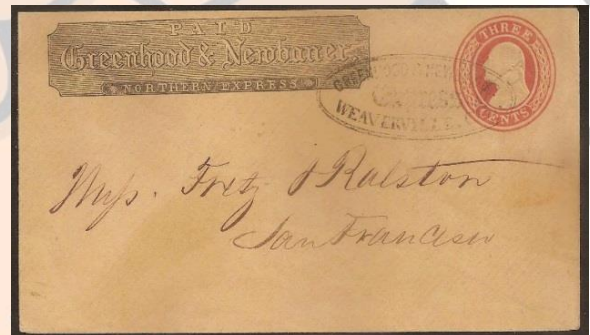 PAID
Greenhood & Newbauer
NORTHERN EXPRESS
GREENHOOD & NEW
EXPRESS
WEAVERVILLE
THREE
CENTS
Mess. Fretz & Ralston
San Francisco